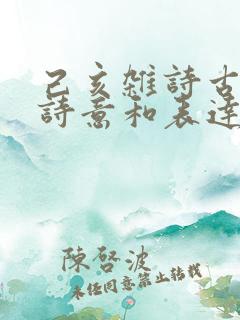 己亥雑詩古
詩意和表達
陳啓波
未經同意禁止轉載